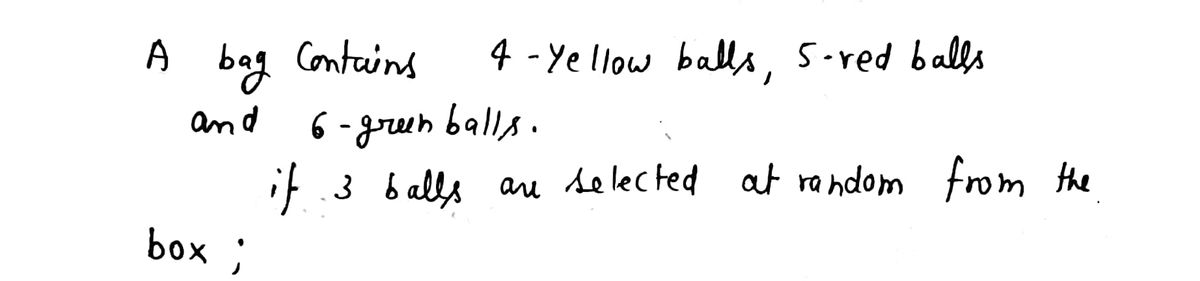 A bag Contains 4 - Yellow balls, 5 - red balls
and 6 - green balls.
if 3 balls are selected at random from the
box ;